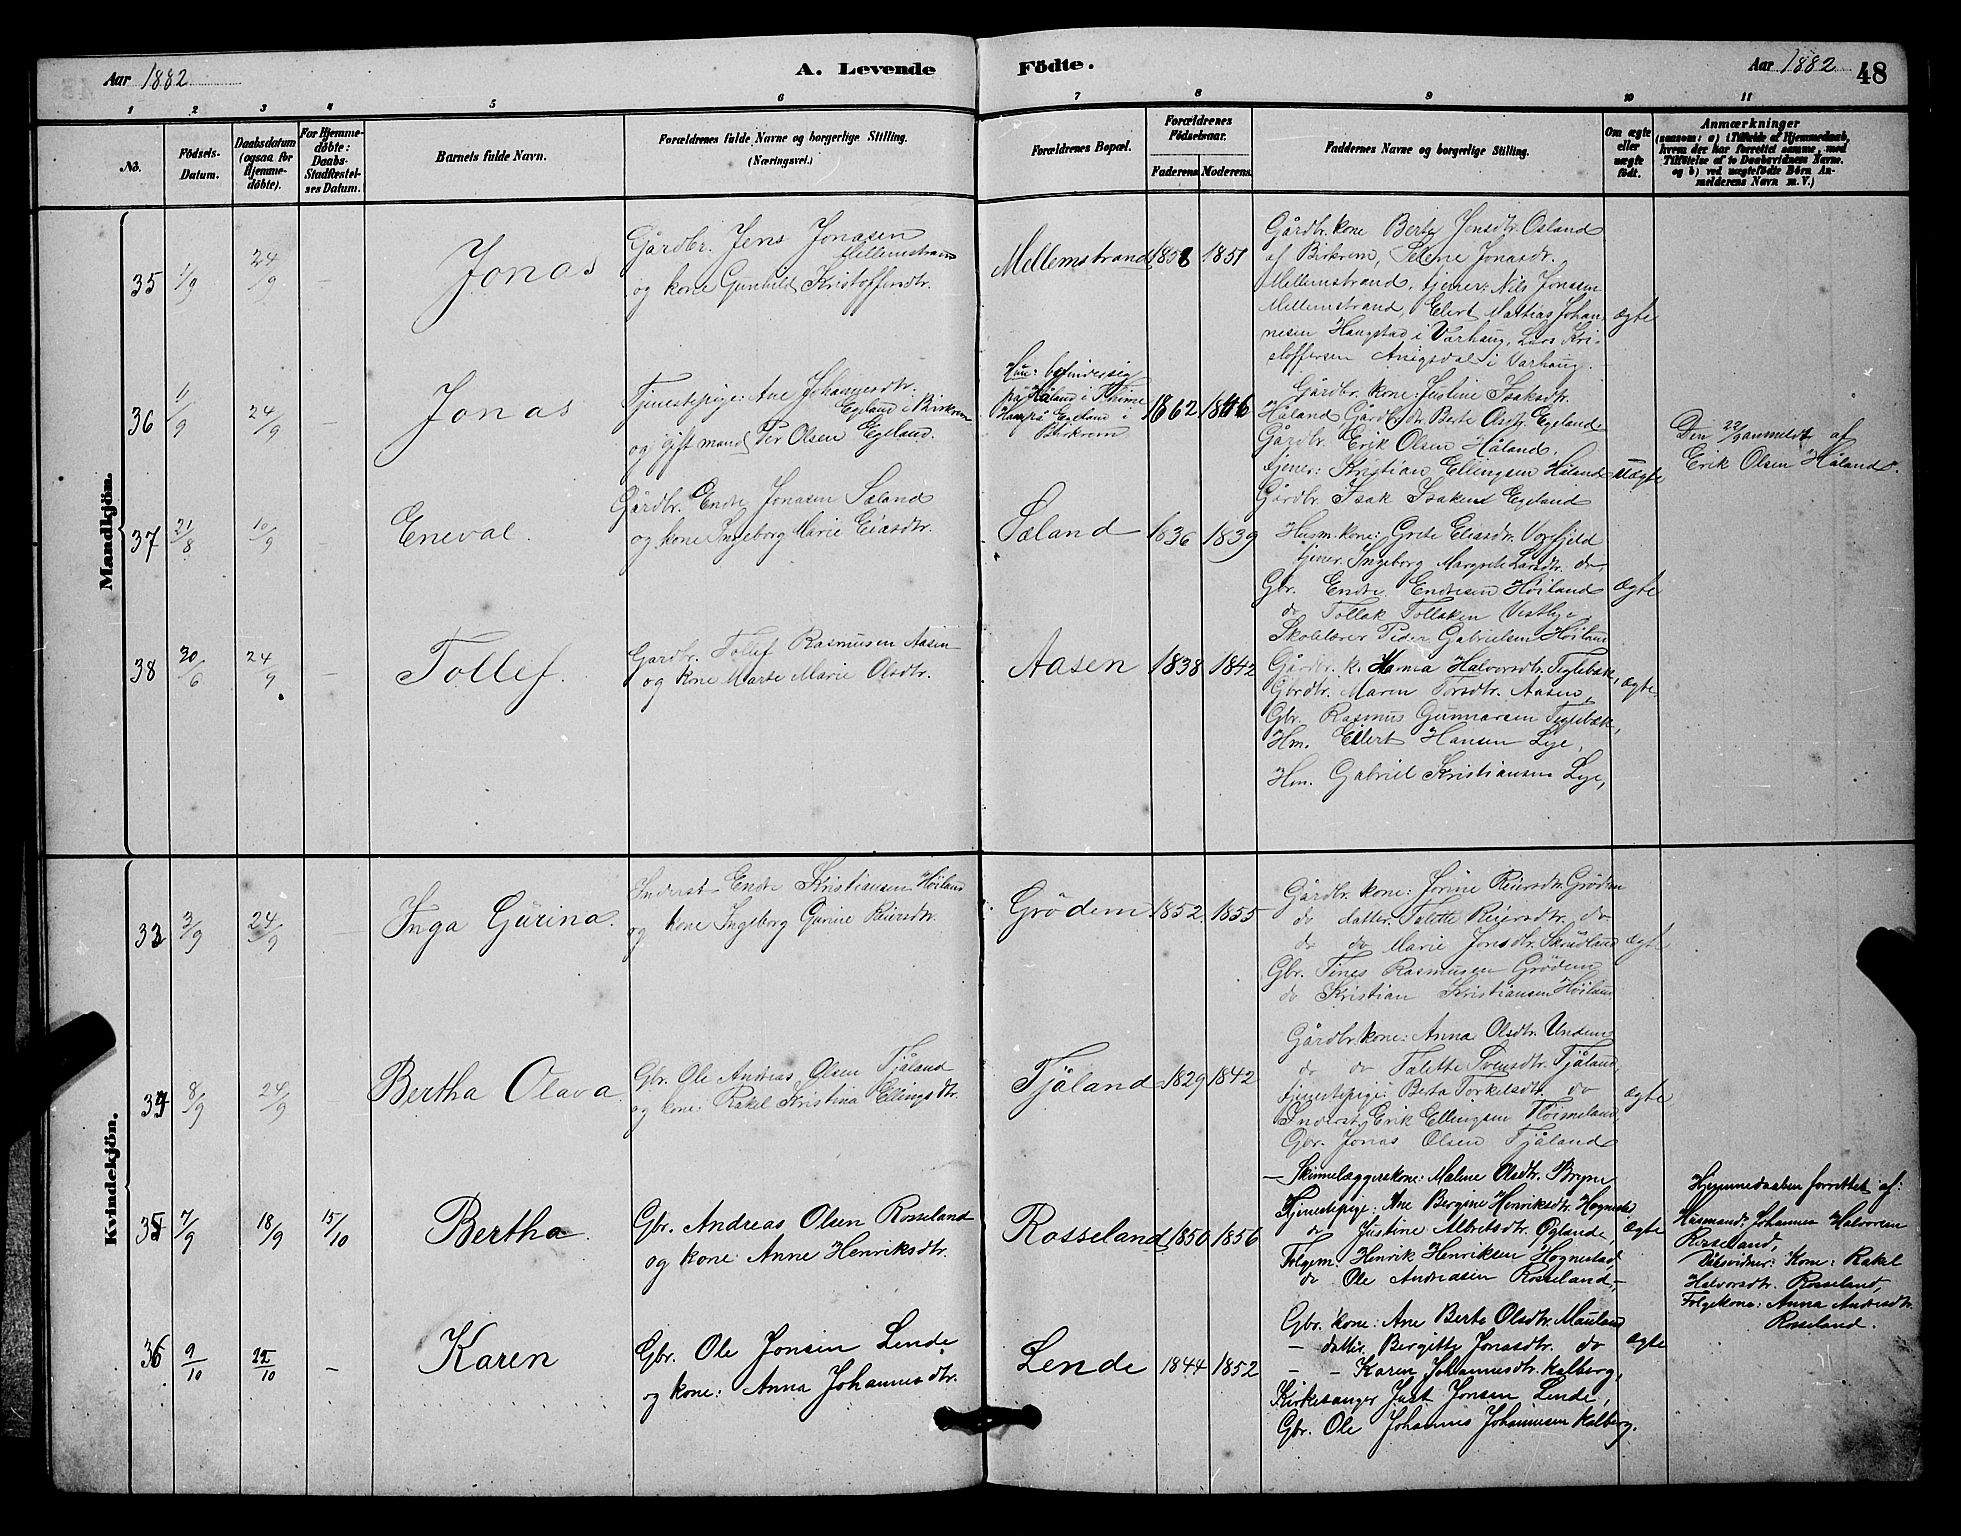 Aar 1882
A. Levende Födte.
Aar 1882
48
1 2 3 4 5 6 7 8 9 10 11
No.
Födsels-Datum.
Daabsdatum (ogsaa for Hjemme-döbte).
For Hjemme-döbte: Daabs-Stadfæstel-ses Datum.
Barnets fulde Navn.
Forældrenes fulde Navne og borgerlige Stilling.
(Næringsvei.)
Forældrenes Bopæl.
Forældrenes Födselsaar.
Faderens Moderens
Faddernes Navne og borgerlige Stilling.
Om ægte eller uægte födt.
Anmærkninger
(saasom: a) i Tilfælde af Hjemmedaab,
hvem der har forrettet samme, med
Tilföielse af to Daabsvidners Navne.
og b) ved uægtefödte Börn An-
melderens Navn m. V.)
Mandkjön.
35 1/9 24/9 – Jonas
Gårdbr. Jens Jonasen
Mellemstrand
og kone Gunhild Kristoffersdtr.
Mellemstrand 1858 1851
Gårdbr. kone Berte Jensdtr. Osland
af Birkrem, Selene Jonasdtr.
Mellemstrand, tjener: Nils Jonsen
Mellemstrand, Elert Mathias Johan-
nesen Haugstad i Varhaug, Lars Kri-
stoffersen Anigsdal i Varhaug.
ægte
36 11/9 24/9 – Jonas
Tjenestepige: Ane Johannesdtr.
Egeland i Birkrem
og gift mand Per Olsen Egeland.
Hun: befinder sig
på Håland i Thime
Han på Egeland i
Birkrem
1862 1846
Gårdbr. kone: Justine Isaksdtr.
Håland Gårdbr. dtr. Berte Egeland
Gårdbr. Erik Olsen Håland,
tjener: Kristian Ellingsen Håland
Gårdbr. Isak Isaksen Egeland
uægte
Den 22/9 anmeldt af
Erik Olsen Håland.
37 21/8 10/9 – Eneval.
Gårdbr. Endre Jonasen Sæland
og kone Ingeborg Marie Eliasdtr.
Sæland 1836 1839
Husm. kone: Grete Eliasdtr.
tjener. Ingeborg Margrete Larsdtr. do
Gbr. Endre Endresen Höiland
do Tollak Tollaksen Vestlye
Skolelærer Peder Gabrielsen Höiland
ægte
38 30/6 24/9 – Tollef.
Gårdbr. Tollef Rasmusen Aasen
og kone Marte Marie Olsdtr.
Aasen 1838 1842
Gårdbr. k. Hanna Halvorsdtr. Teglebæk,
Gbrdtr. Maren Torsdtr. Aasen,
Gbr. Rasmus Gunnarsen Teglebæk,
Hm. Ellert Hansen Lye,
Hm. Gabriel Kristiansen Lye,
ægte
Kvindekjön.
33 3/9 24/9 – Inga Gurina.
Inderst Endre Kristiansen Höiland
og kone Ingeborg Gurine Reiersdtr.
Grödem 1852 1855
Gårdbr. kone: Jorine Reiersdtr. Grödem
do datter. Talette Reiersdtr. do
do do Marie Jonsdtr. Skrudland
Gbr. Tines Rasmusen Grödem
do Kristian Kristiansen Höiland
ægte
34 8/9 24/9 – Bertha Olava
Gbr. Ole Andreas Olsen Tjåland
og kone: Rakel Kristina Ellingsdtr.
Tjåland 1829 1842
Gårdbr. kone: Anna Olsdtr. Undem
do do Talette Svensdtr. Tjåland,
tjenestepige: Berta Torkelsdtr. do
Inderst. Erik Ellingsen
Gbr. Jonas Olsen Tjåland
ægte
35 7/9 18/9 15/10 Bertha.
Gbr. Andreas Olsen Rosseland
og kone: Anne Henriksdtr.
Rosseland 1850 1856
– Skinnelæggerskone: Malene Olsdtr. Bryne
Tjenestepige: Ane Bergine Henriksdtr. Hognestad
do Justine Albretsdtr. Öglænd,
Folgem. Henrik Henriksen Hognestad,
do Ole Andreasen Rosseland, –
ægte
Hjemmedaaben forrettet af:
Husmand: Johannes Halvorsen
Rosseland,
Dåbsvidner: Kone: Rakel
Halvorsdtr. Rosseland,
Folgekone: Anna Andersdtr.
Rosseland.
36 9/10 22/10 – Karen
Gbr. Ole Jonsen Lende
og kone: Anna Johannesdtr.
Lende 1844 1852
Gbr. kone: Ane Berte Olsdtr. Mauland
– datter. Bergitte Jonasdtr. do
– – Karen Johannesdtr. Kalberg,
Kirkesanger Just Jonsen Lende,
Gbr. Ole Johannes Johannesen Kalberg.
ægte